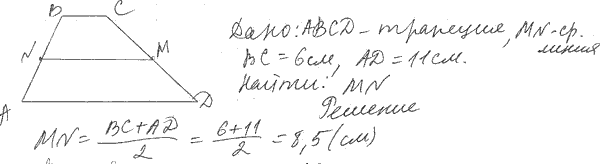 B C
Дано: ABCD - трапеция, MN-ср. линия
N M
BC = 6 см, AD = 11 см.
Найти: MN
A D
Решение
MN = (BC+AD)/2 = (6+11)/2 = 8,5 (см)